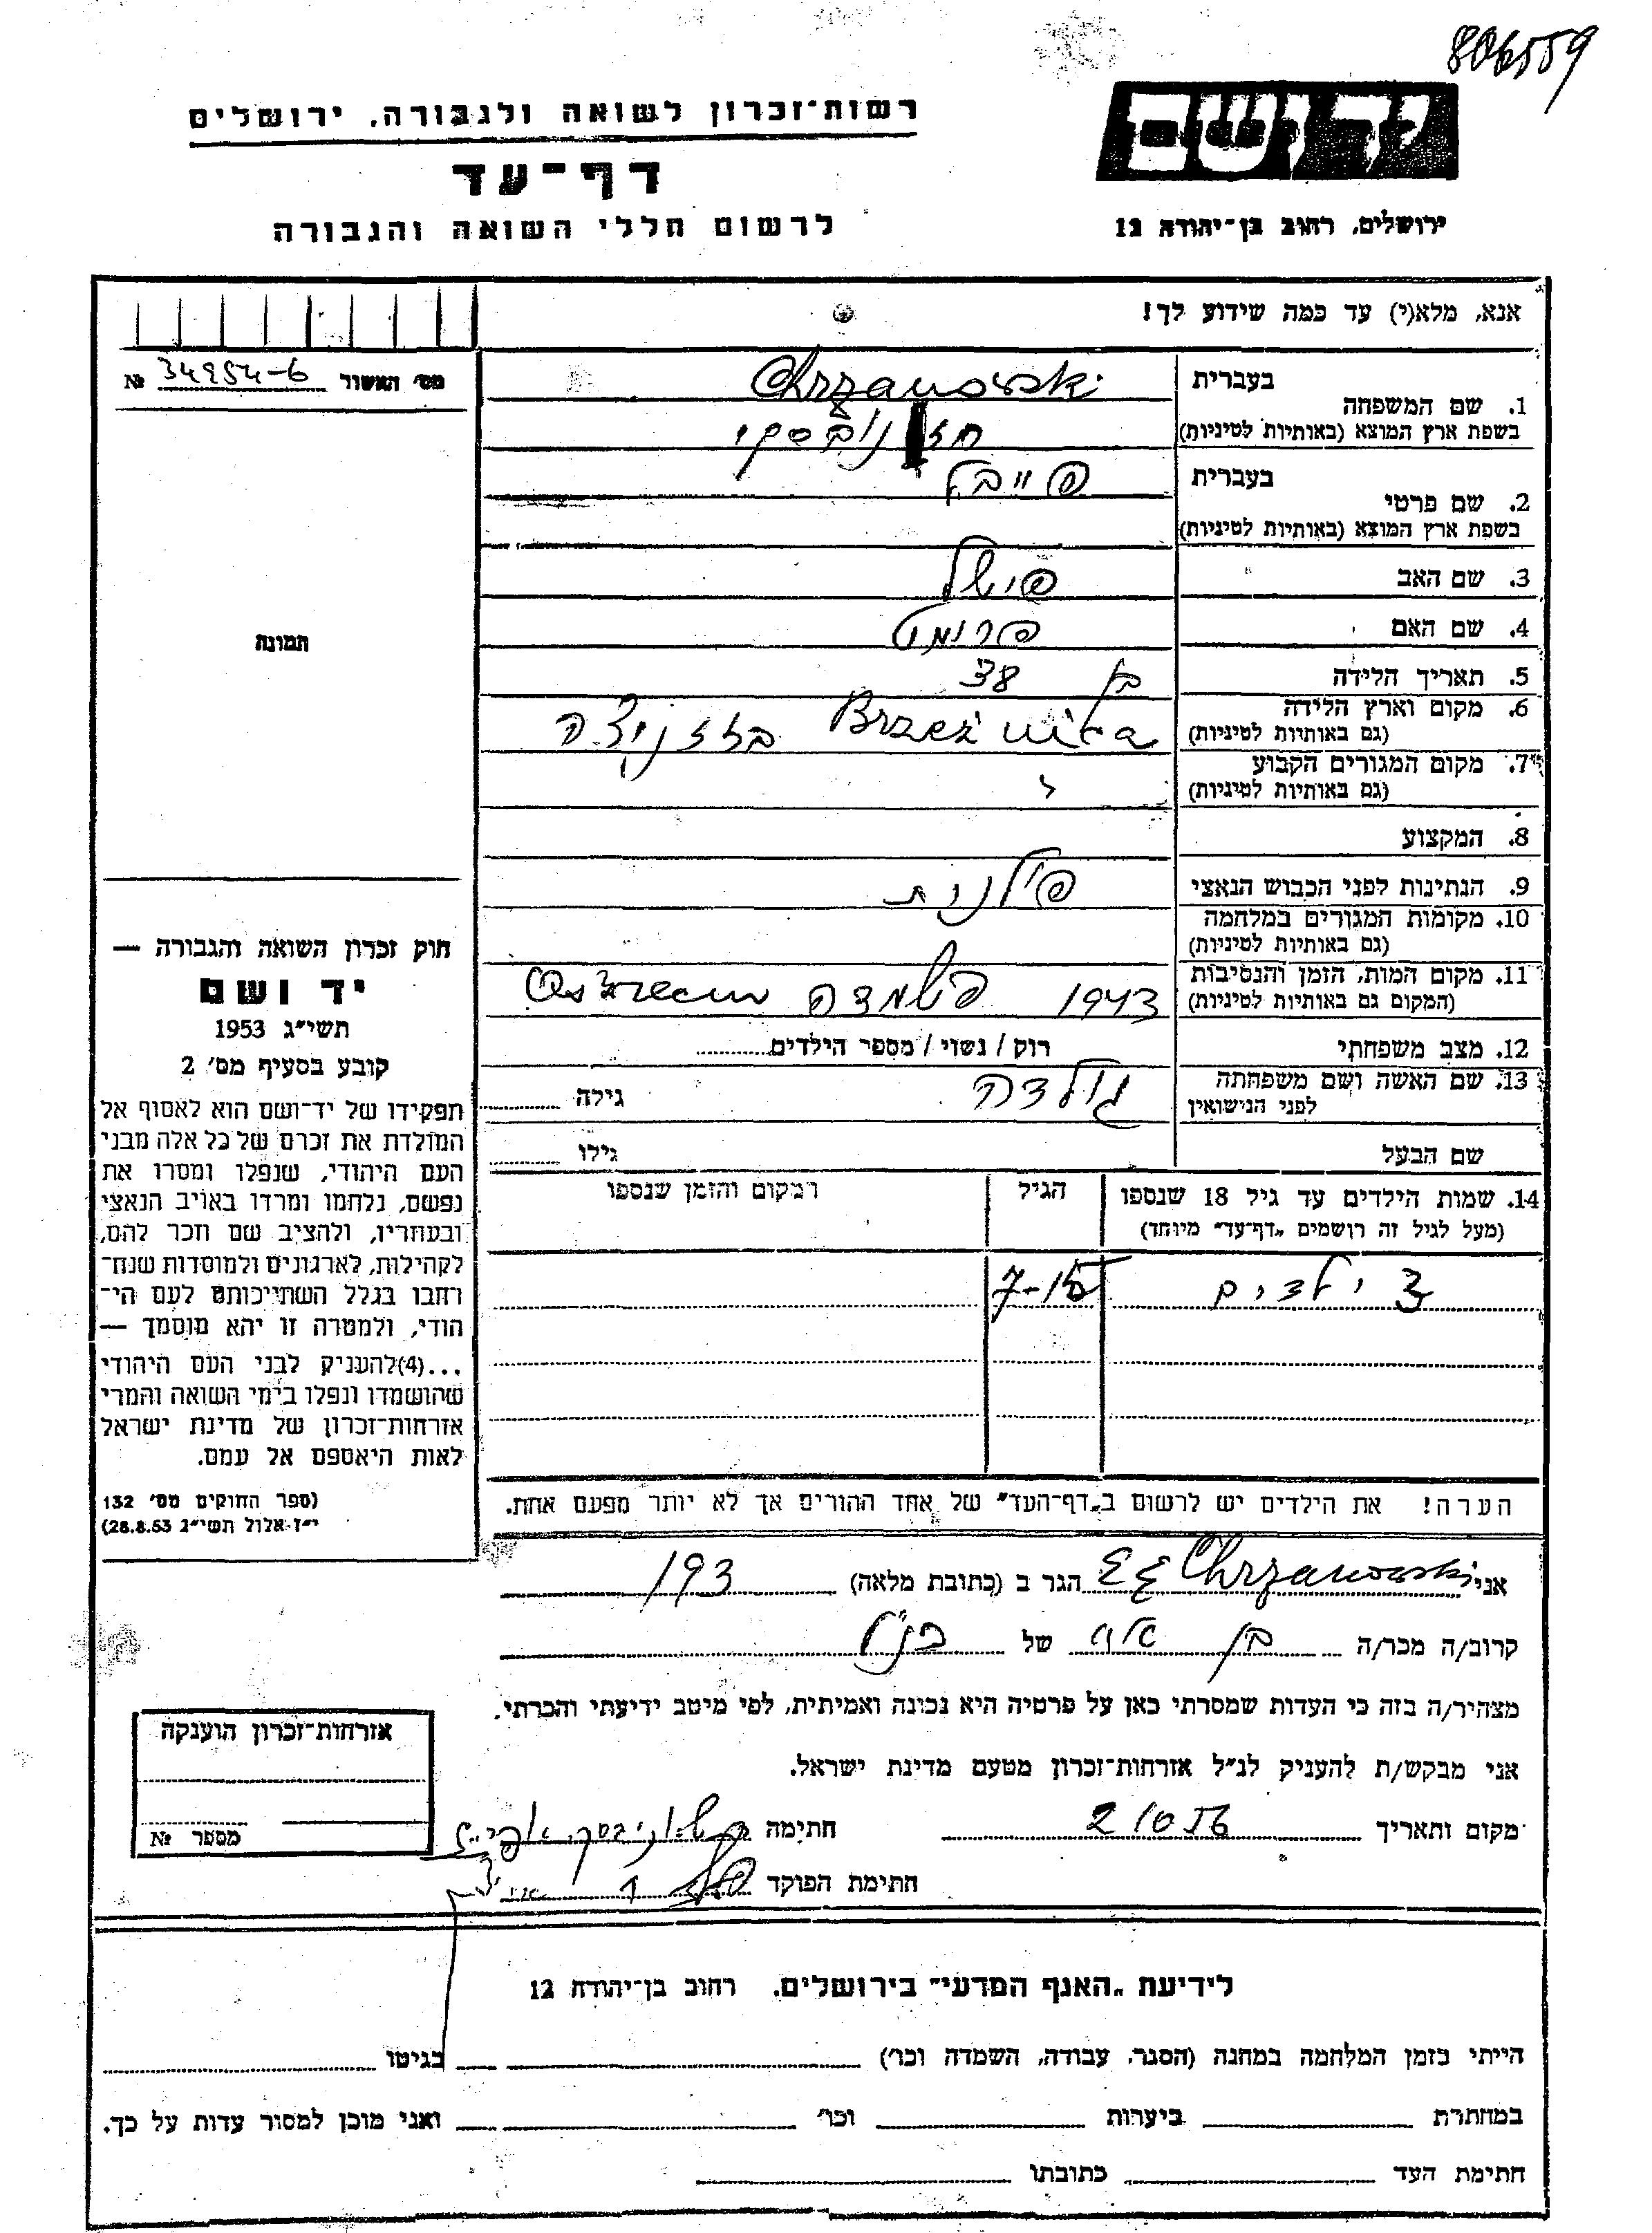 806559
רשות־זכרון לשואה ולגבורה, ירושלים
יד ושם
דף־עד
לרשום חללי השואה והגבורה
ירושלים, רחוב בן־יהודה 12
אנא, מלא(י) עד כמה שידוע לך!
מס׳ האשור № 34954-6
בעברית Chrzanowski
1. שם המשפחה
בשפת ארץ המוצא (באותיות לטיניות) חז נובסקי
בעברית פייבל
2. שם פרטי
בשפת ארץ המוצא (באותיות לטיניות)
3. שם האב פישל
4. שם האם פרומט
5. תאריך הלידה בן 38
6. מקום וארץ הלידה
(גם באותיות לטיניות) Brzeźnica ברזזניצה
7. מקום המגורים הקבוע
(גם באותיות לטיניות)
8. המקצוע
9. הנתינות לפני הכבוש הנאצי פולנית
10. מקומות המגורים במלחמה
(גם באותיות לטיניות)
11. מקום המות, הזמן והנסיבות
(המקום גם באותיות לטיניות) 1943 השמדה
12. מצב משפחתי רוק / נשוי / מספר הילדים
13. שם האשה ושם משפחתה
לפני הנישואין גולדה גילה
שם הבעל גילו
14. שמות הילדים עד גיל 18 שנספו הגיל המקום והזמן שנספו
(מעל לגיל זה רושמים „דף־עד״ מיוחד)
3 ילדים 7-15
הערה! את הילדים יש לרשום ב„דף־העד״ של אחד ההורים אך לא יותר מפעם אחת.
תמונה
חוק זכרון השואה והגבורה —
יד ושם
תשי״ג 1953
קובע בסעיף מס׳ 2
תפקידו של יד־ושם הוא לאסוף אל
המולדת את זכרם של כל אלה מבני
העם היהודי, שנפלו ומסרו את
נפשם, נלחמו ומרדו באויב הנאצי
ובעוזריו, ולהציב שם וזכר להם,
לקהילות, לארגונים ולמוסדות שנח־
רחבו בגלל השתייכותם לעם הי־
הודי, ולמטרה זו יהא מוסמך —
...(4)להעניק לבני העם היהודי
שהושמדו ונפלו בימי השואה והמרי
אזרחות־זכרון של מדינת ישראל
לאות היאספם אל עמם.
(ספר החוקים מס׳ 132
י״ז אלול תשי״ג 28.8.53)
אני Chrzanowski הגר ב (כתובת מלאה) 193
קרוב/ה מכר/ה בן של הנ״ל
מצהיר/ה בזה כי העדות שמסרתי כאן על פרטיה היא נכונה ואמיתית, לפי מיטב ידיעתי והכרתי.
אני מבקש/ת להעניק לנ״ל אזרחות־זכרון מטעם מדינת ישראל.
מקום ותאריך 2 10 56 חתימה
חתימת הפוקד
אזרחות־זכרון הוענקה
מספר №
לידיעת „האגף המדעי״ בירושלים, רחוב בן־יהודה 12
הייתי בזמן המלחמה במחנה (הסגר, עבודה, השמדה וכו׳) בגיטו
במחתרת ביערות וכו׳ ואני מוכן למסור עדות על כך.
חתימת העד כתובתו